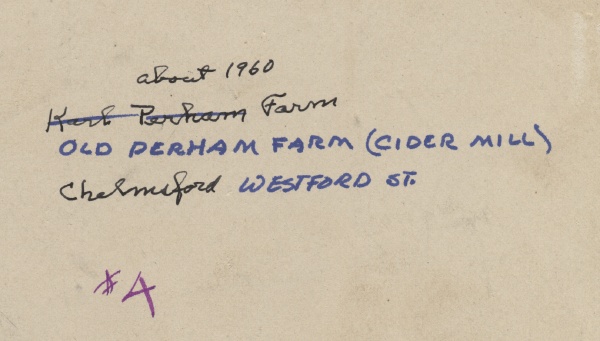 about 1960
Karl Perham Farm
OLD PERHAM FARM (CIDER MILL)
Chelmsford WESTFORD ST.
#4